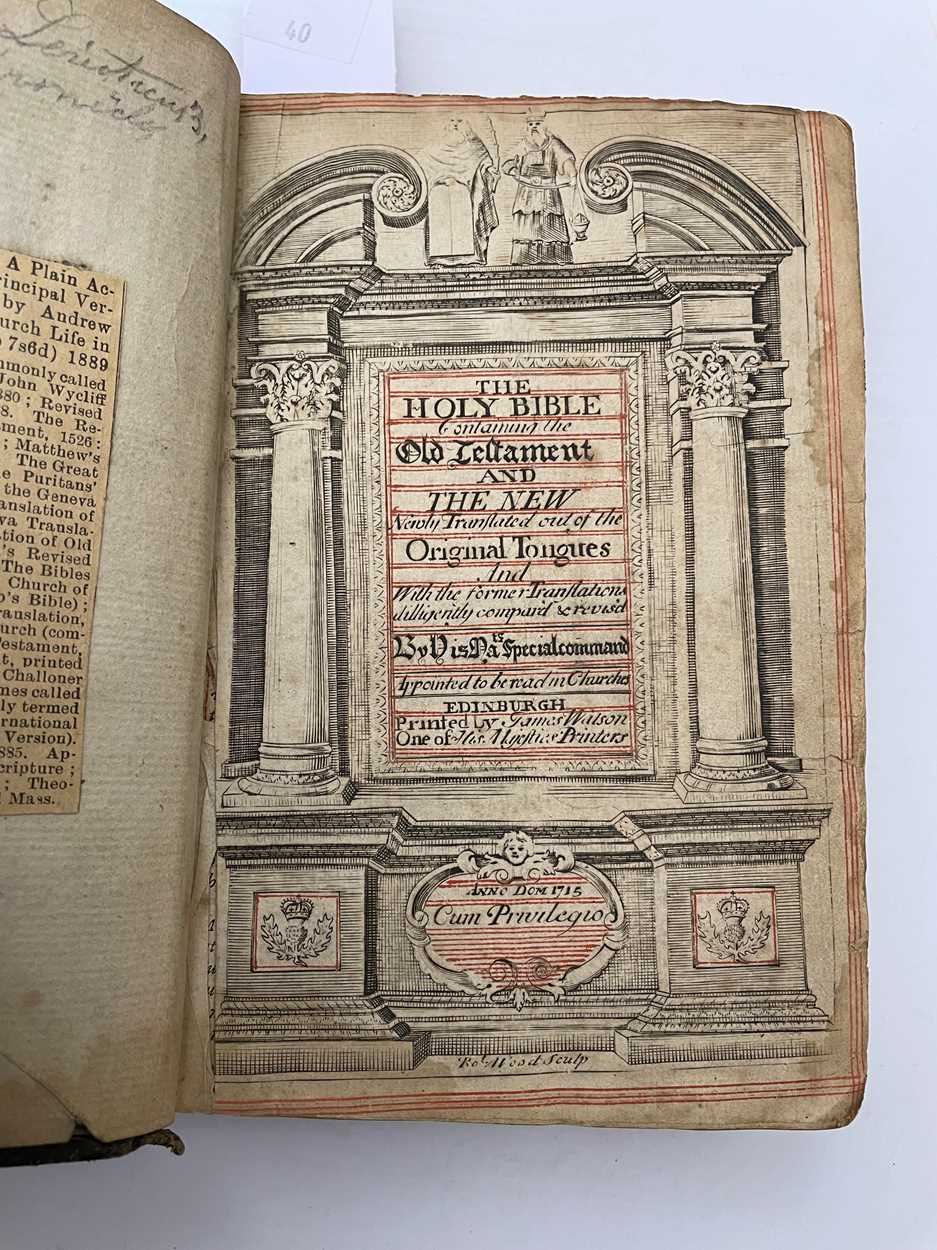 40
Leviticus 3,
A Plain Ac-
rincipal Ver-
by Andrew
urch Life in
7s6d) 1889
mmonly called
John Wycliff
380; Revised
8. The Re-
ament, 1526:
; Matthew's
The Great
e Puritans'
the Geneva
anslation of
va Transla-
ation of Old
's Revised
The Bibles
Church of
p's Bible);
ranslation,
urch (com-
Testament,
t, printed
Challoner
mes called
ly termed
rnational
Version).
1885. Ap-
cripture;
; Theo-
Mass.
THE
HOLY BIBLE
Containing the
Old Testament
AND
THE NEW
Newly Translated out of the
Original Tongues
And
With the former Translations
dilligently compar'd & revis'd
By His Ma.ts Special command
Appointed to be read in Churches
EDINBURGH
Printed by James Watson
One of His Majesties Printers
ANNO DOM 1715
Cum Privilegio
Ro.t Wood Sculp